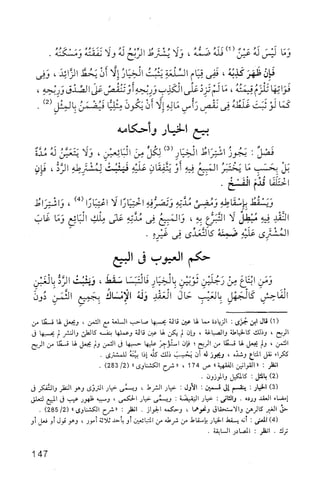 وَمَا لَيْسَ لَهُ عَيْنٌ (1) فَلَهُ ضَمُّهُ، وَلَا يُشْتَرَطُ الرِّبْحُ لَهُ وَلَا نَفَقَتُهُ وَمَسْكَنُهُ.
فَإِنْ ظَهَرَ كَذِبُهُ، فَفِي قِيَامِ السِّلْعَةِ يَثْبُتُ الْخِيَارُ إِلَّا أَنْ يَحُطَّ الزَّائِدَ، وَفِي
فَوَاتِهَا تَلْزَمُ قِيمَتُهُ، مَا لَمْ تَزِدْ عَلَى الْكَذِبِ وَرِبْحِهِ أَوْ تَنْقُصْ عَلَى الصِّدْقِ وَرِبْحِهِ،
كَمَا لَوْ ثَبَتَ غَلَطُهُ فِي نَقْصِ رَأْسِ مَالِهِ إِلَّا أَنْ يَكُونَ مِثْلِيًّا فَيُضْمَنُ بِالْمِثْلِ (2).
بيع الخيار وأحكامه
فَصْلٌ: يَجُوزُ اشْتِرَاطُ الْخِيَارِ (3) لِكُلٍّ مِنَ الْبَائِعَيْنِ، وَلَا يَتَعَيَّنُ لَهُ مُدَّةٌ
بَلْ بِحَسَبِ مَا يُخْتَبَرُ الْمَبِيعُ فِيهِ أَوْ يَتَّفِقَانِ عَلَيْهِ فَيَثْبُتُ لِمُشْتَرِطِهِ الرَّدُّ، فَإِنِ
اخْتَلَفَا قُدِّمَ الْفَسْخُ.
وَيَسْقُطُ بِإِسْقَاطِهِ وَمُضِيِّ مُدَّتِهِ وَتَصَرُّفِهِ اخْتِيَارًا لَا اعْتِبَارًا (4)، وَاشْتِرَاطُ
النَّقْدِ فِيهِ مُبْطِلٌ لَا التَّبَرُّعُ بِهِ، وَالْمَبِيعُ فِي مُدَّتِهِ عَلَى مِلْكِ الْبَائِعِ وَمَا غَابَ
الْمُشْتَرِي عَلَيْهِ ضَمِنَهُ كَالتَّعَدِّي فِي غَيْرِهِ.
حكم العيوب في البيع
وَمَنِ ابْتَاعَ مِنْ رَجُلَيْنِ ثَوْبَيْنِ بِالْخِيَارِ فَالْتَبَسَا سَقَطَ، وَيَثْبُتُ الرَّدُّ بِالْغَبْنِ
الْفَاحِشِ كَالْجَهْلِ بِالْعَيْبِ حَالَ الْعَقْدِ وَلَهُ الْإِمْسَاكُ بِجَمِيعِ الثَّمَنِ دُونَ
(1) قال ابن جُزي: الزيادة مما لها عين قائمة يحسبها صاحب السلعة مع الثمن، ويجعل لها قسطًا من
الربح، وذلك كالخياطة والصباغة، وإن لم يكن لها عين قائمة وعملها بنفسه كالطي والنشر لم يحسبها في
الثمن، ولم يجعل لها قسطًا من الربح، فإن استأجر عليها حسبها في الثمن ولم يجعل لها قسطًا من الربح
ككراء نقل المتاع وشده، ويجوز له أن يحسب ذلك كله إذا بينه للمشتري.
انظر: «القوانين الفقهية» ص 174، «شرح الكشناوي» (283/2).
(2) بالمثل: كالمكيل والموزون.
(3) الخيار: ينقسم إلى قسمين: الأول: خيار الشرط، ويسمى خيار التروّي وهو النظر والتفكر في
إمضاء العقد ورده. والثاني: خيار النقيصة: ويسمى خيار الحكمي، وسببه ظهور عيب في المبيع لتعلق
حق الغير كالرهن والاستحقاق ونحوهما، وحكمه الجواز. انظر: «شرح الكشناوي» (285/2).
(4) المعنى: أنه يسقط الخيار بإسقاط من شرطه من المتبايعين أو بأحد ثلاثة أمور، وهو قول أو فعل أو
ترك. انظر: المصادر السابقة.
147